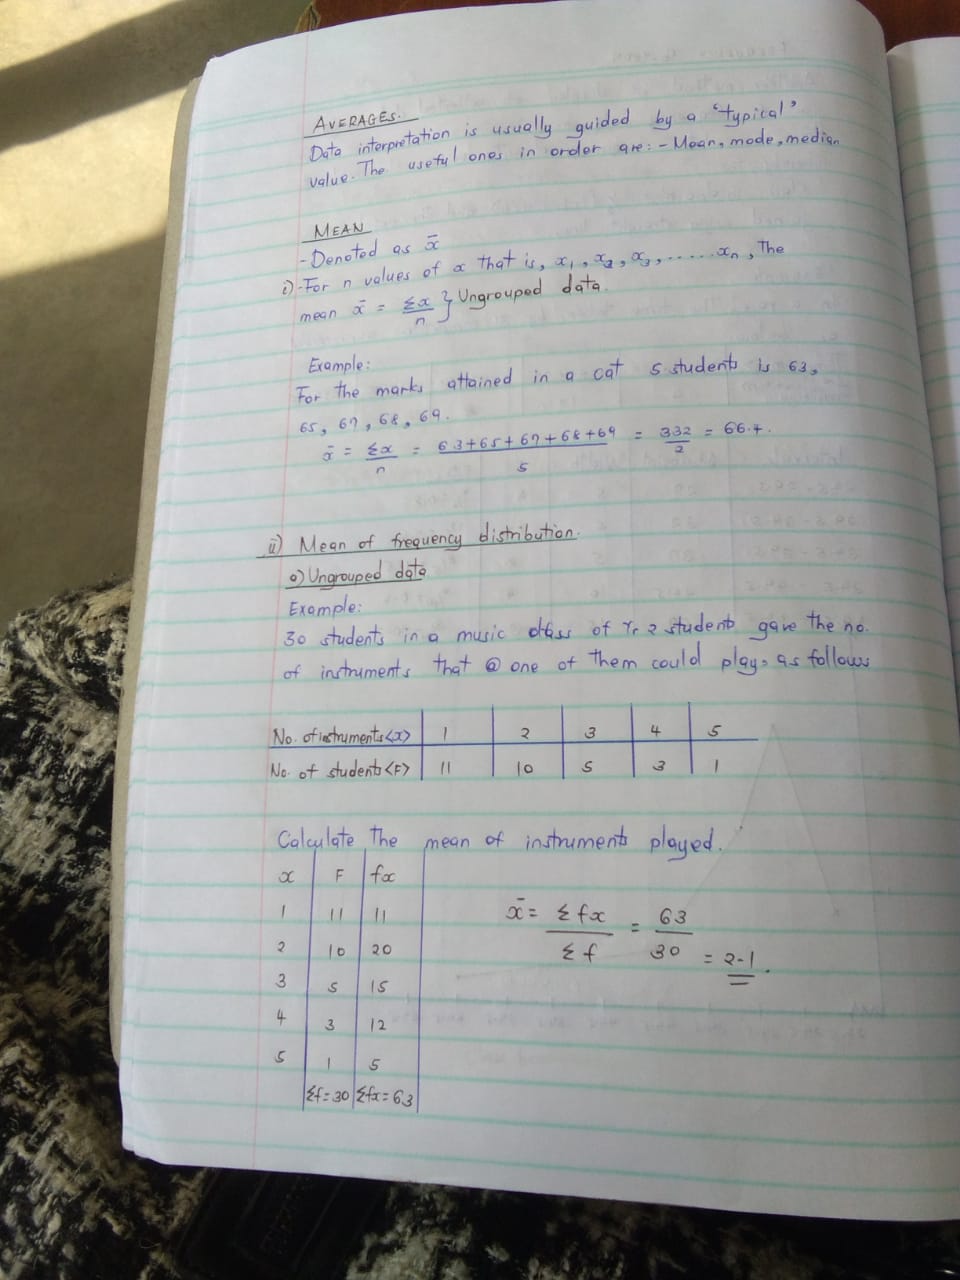 AVERAGES.
Data interpretation is usually guided by a "typical"
value. The useful ones in order are:- Mean, mode, median
MEAN
- Denoted as x̄
i) - For n values of x that is, x₁, x₂, x₃, ...... xₙ, The
mean x̄ = Σx/n } Ungrouped data.
Example:
For the marks attained in a cat 5 students is 63,
65, 67, 68, 69.
x̄ = Σx/n = 63+65+67+68+69/5 = 332/2 = 66.4.
ii) Mean of frequency distribution.
a) Ungrouped data
Example:
30 students in a music class of Yr 2 students gave the no.
of instruments that @ one of them could play, as follows
No. of instruments <x> 1 2 3 4 5
No. of students <F> 11 10 5 3 1
Calculate the mean of instruments played.
x F fx
1 11 11
2 10 20
3 5 15
4 3 12
5 1 5
Σf=30 Σfx=63
x̄ = Σfx/Σf = 63/30 = 2.1.